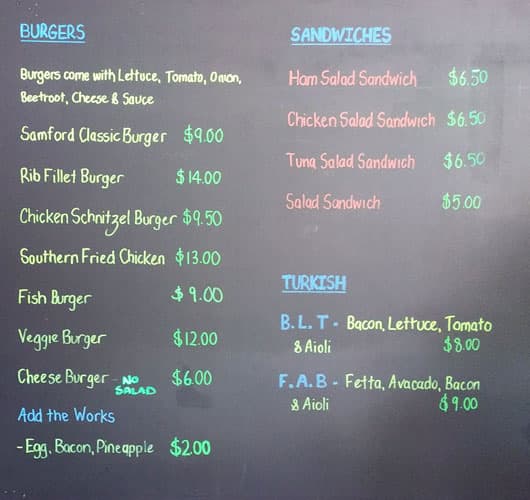 BURGERS
Burgers come with Lettuce, Tomato, Onion,
Beetroot, Cheese & Sauce
Samford Classic Burger $9.00
Rib Fillet Burger $14.00
Chicken Schnitzel Burger $9.50
Southern Fried Chicken $13.00
Fish Burger $9.00
Veggie Burger $12.00
Cheese Burger - NO SALAD $6.00
Add the Works
- Egg, Bacon, Pineapple $2.00
SANDWICHES
Ham Salad Sandwich $6.50
Chicken Salad Sandwich $6.50
Tuna Salad Sandwich $6.50
Salad Sandwich $5.00
TURKISH
B.L.T - Bacon, Lettuce, Tomato
& Aioli $8.00
F.A.B - Fetta, Avacado, Bacon
& Aioli $9.00